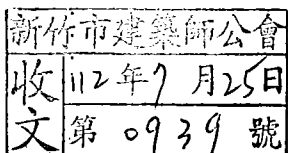 新竹市建築師公會
收文
112年7月25日
第0939號